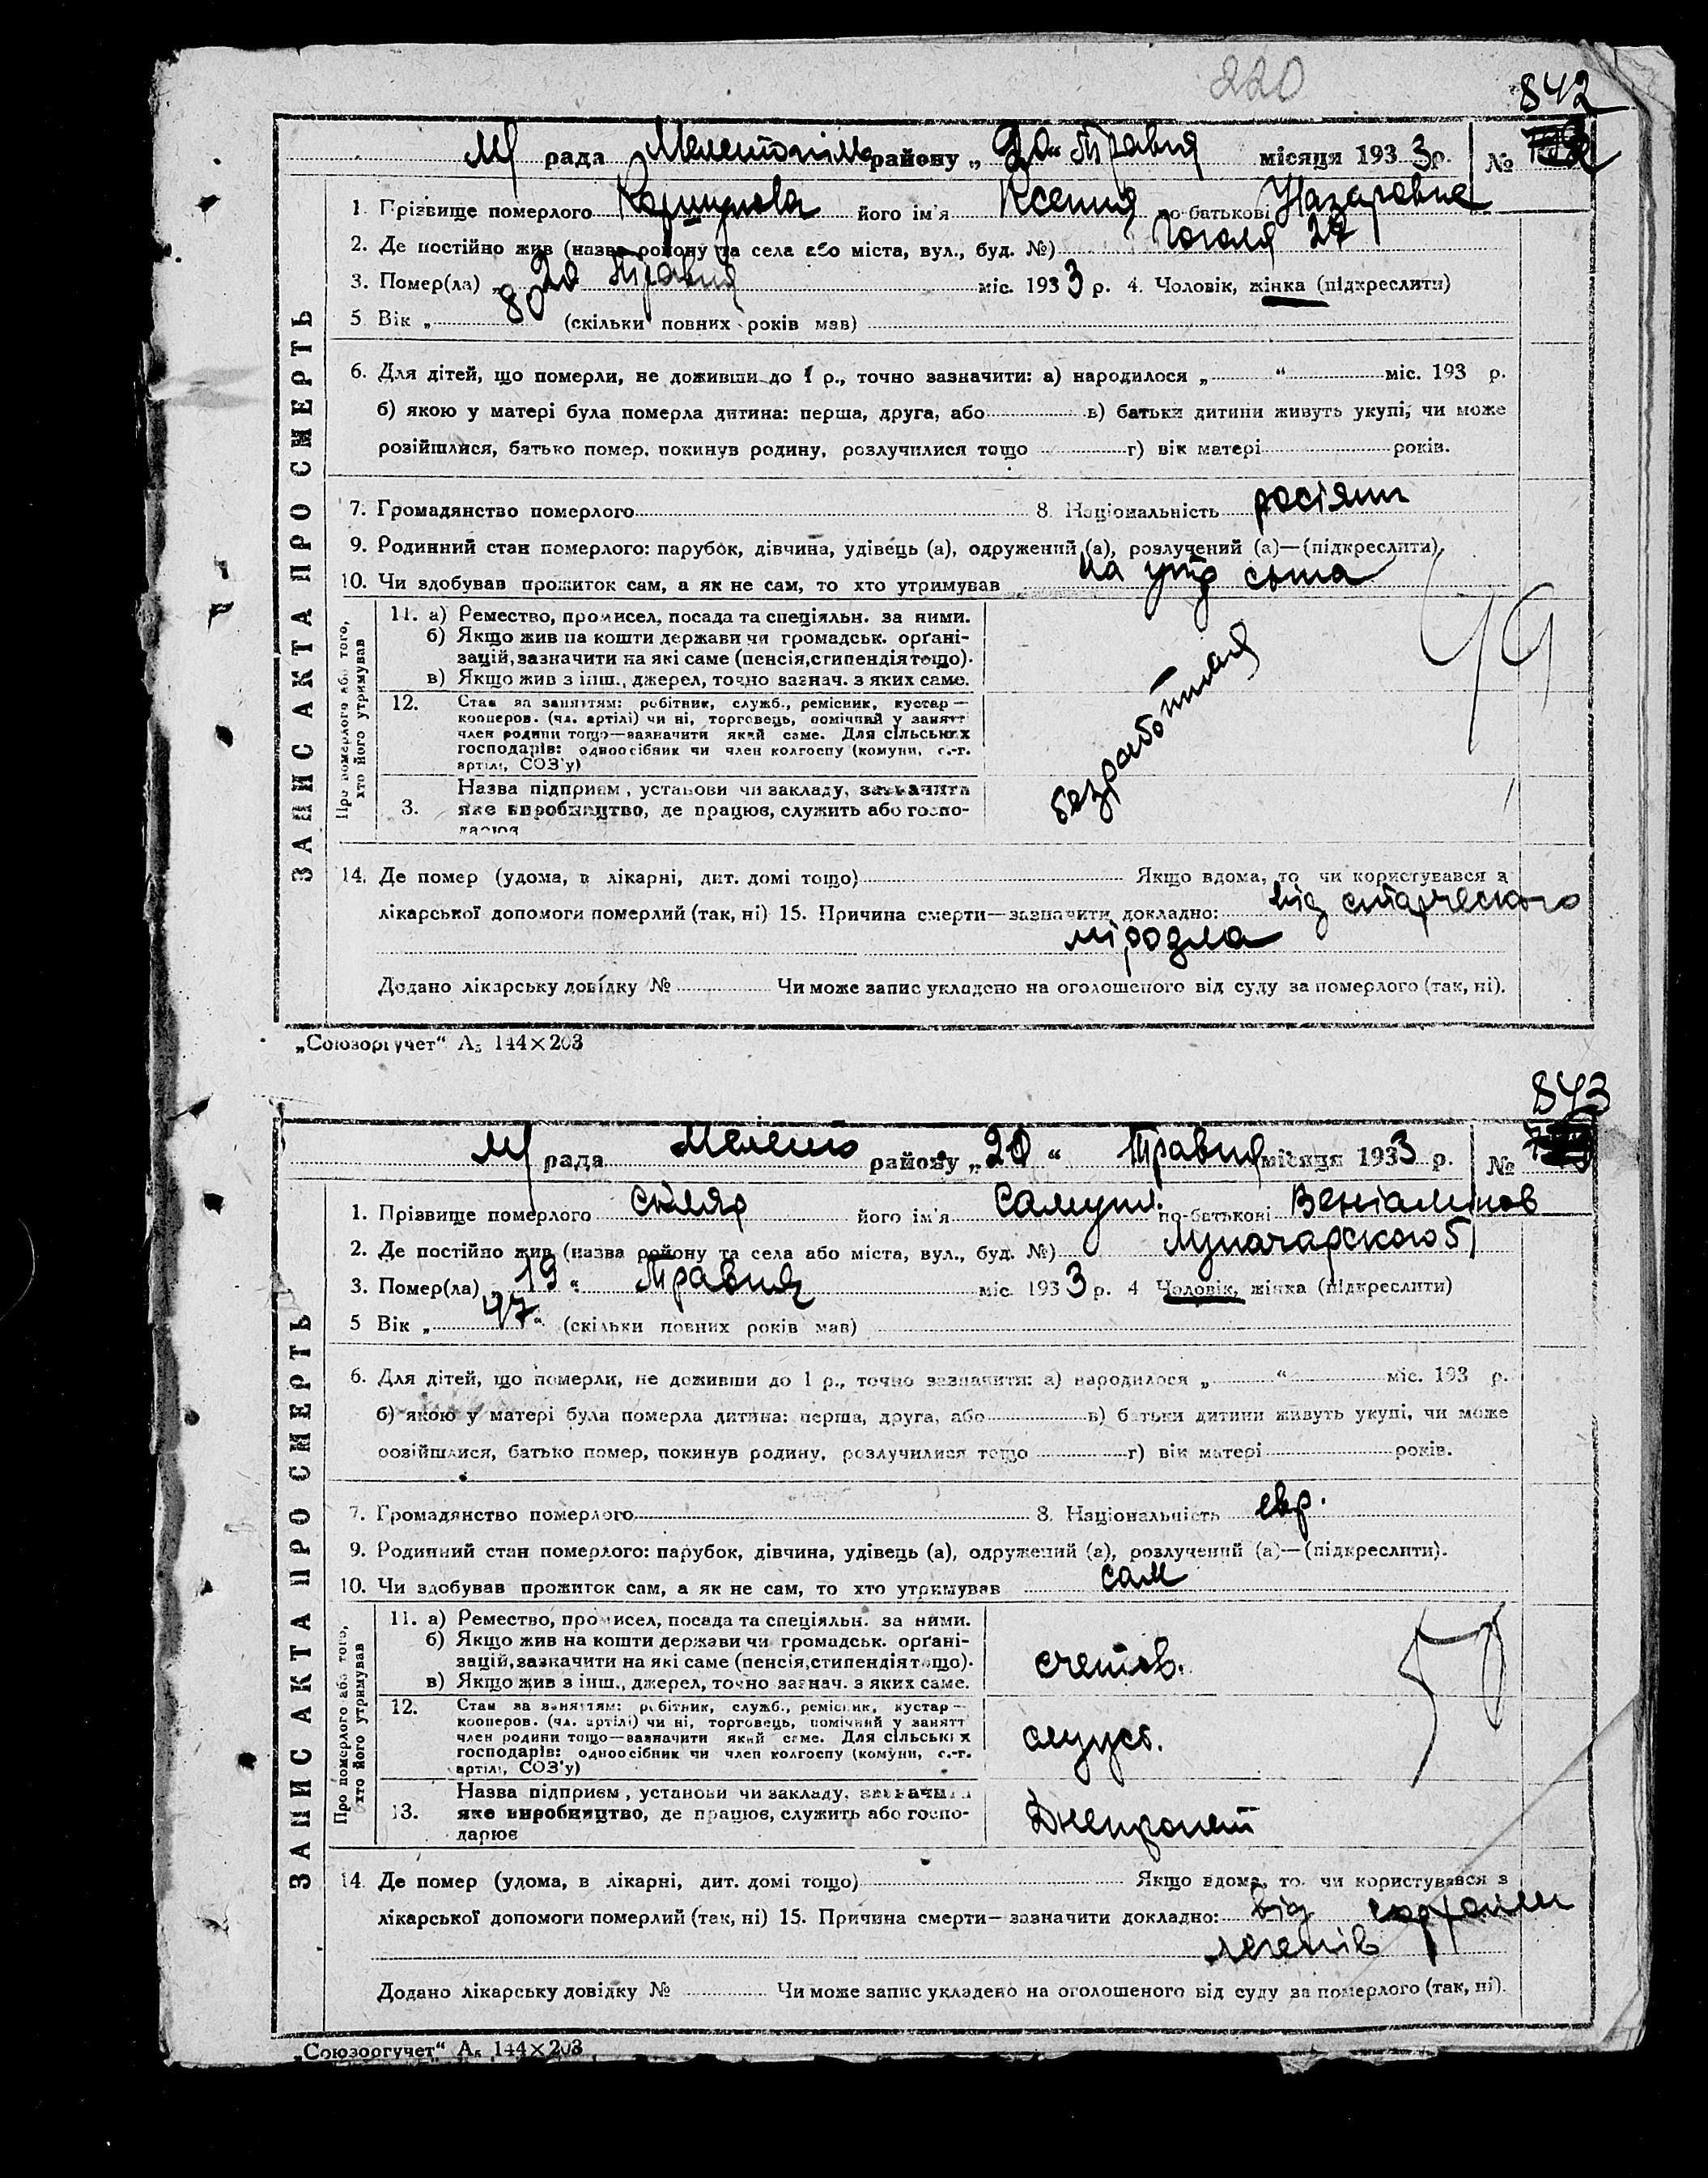 220
842
М/ рада Мелитопілм району „ 20 “ Травня місяця 193 3 р. №
1. Прізвище померлого Коршунова його ім'я Ксения по-батькові Назаровна
2. Де постійно жив (назва району та села або міста, вул., буд. №) Гоголя 27
3. Помер(ла) „ 20 Травня міс. 193 3 р. 4. Чоловік, жінка (підкреслити)
5. Вік „ 80 (скільки повних років мав)
6. Для дітей, що померли, не доживши до 1 р., точно зазначити: а) народилося „ “ міс. 193 р.
б) якою у матері була померла дитина: перша, друга, або в) батьки дитини живуть укупі, чи може
розійшлися, батько помер, покинув родину, розлучилися тощо г) вік матері років.
7. Громадянство померлого 8. Національність росіянк
9. Родинний стан померлого: парубок, дівчина, удівець (а), одружений (а), розлучений (а)—(підкреслити).
10. Чи здобував прожиток сам, а як не сам, то хто утримував на утр сына
11. а) Ремество, промисел, посада та спеціяльн. за ними.
б) Якщо жив на кошти держави чи громадськ. орґані-
зацій, зазначити на які саме (пенсія, стипендія тощо).
в) Якщо жив з інш., джерел, точно зазнач. з яких саме.
12. Стан за заняттям: робітник, служб., ремісник, кустар —
кооперов. (чл. артілі) чи ні, торговець, помічний у занятт
член родини тощо—зазначити який саме. Для сільських
господарів: одноосібник чи член колгоспу (комуни, с.-г.
артілі, СОЗ'у)
безработная
99
Назва підприєм., установи чи закладу, зазначити
3. яке виробництво, де працює, служить або госпо-
дарює
14. Де помер (удома, в лікарні, дит. домі тощо) Якщо вдома, то чи користувався з
лікарської допомоги померлий (так, ні) 15. Причина смерти—зазначити докладно: від старческого
Додано лікарську довідку № Чи може запис укладено на оголошеного від суду за померлого (так, ні).
ЗАПИС АКТА ПРО СМЕРТЬ
Про померлого або того,
хто його утримував
„Союзоргучет“ А₅ 144×203
843
М/ рада Мелито району „ 20 “ Травня місяця 193 3 р. №
1. Прізвище померлого Скляр його ім'я Самуил по-батькові Веніаминов
2. Де постійно жив (назва району та села або міста, вул., буд. №) Луначарского 51
3. Помер(ла) „ 19 “ Травня міс. 193 3 р. 4 Чоловік, жінка (підкреслити)
5 Вік „ 47 “ (скільки повних років мав)
6. Для дітей, що померли, не доживши до 1 р., точно зазначити: а) народилося „ “ міс. 193 р.
б) якою у матері була померла дитина: перша, друга, або в) батьки дитини живуть укупі, чи може
розійшлися, батько помер, покинув родину, розлучилися тощо г) вік матері років.
7. Громадянство померлого 8. Національність евр.
9. Родинний стан померлого: парубок, дівчина, удівець (а), одружений (а), розлучений (а)—(підкреслити).
10. Чи здобував прожиток сам, а як не сам, то хто утримував сам
11. а) Ремество, промисел, посада та спеціяльн. за ними.
б) Якщо жив на кошти держави чи громадськ. орґані-
зацій, зазначити на які саме (пенсія, стипендія тощо).
в) Якщо жив з інш., джерел, точно зазнач. з яких саме.
счетов.
12. Стан за заняттям: робітник, служб., ремісник, кустар —
кооперов. (чл. артілі) чи ні, торговець, помічний у занятт
член родини тощо—зазначити який саме. Для сільських
господарів: одноосібник чи член колгоспу (комуни, с.-г.
артілі, СОЗ'у)
служб.
Назва підприєм., установи чи закладу, зазначити
13. яке виробництво, де працює, служить або госпо-
дарює
14. Де помер (удома, в лікарні, дит. домі тощо) Якщо вдома, то чи користувався з
лікарської допомоги померлий (так, ні) 15. Причина смерти—зазначити докладно: від
легенів
Додано лікарську довідку № Чи може запис укладено на оголошеного від суду за померлого (так, ні).
ЗАПИС АКТА ПРО СМЕРТЬ
Про померлого або того,
хто його утримував
„Союзоргучет“ А₅ 144×203